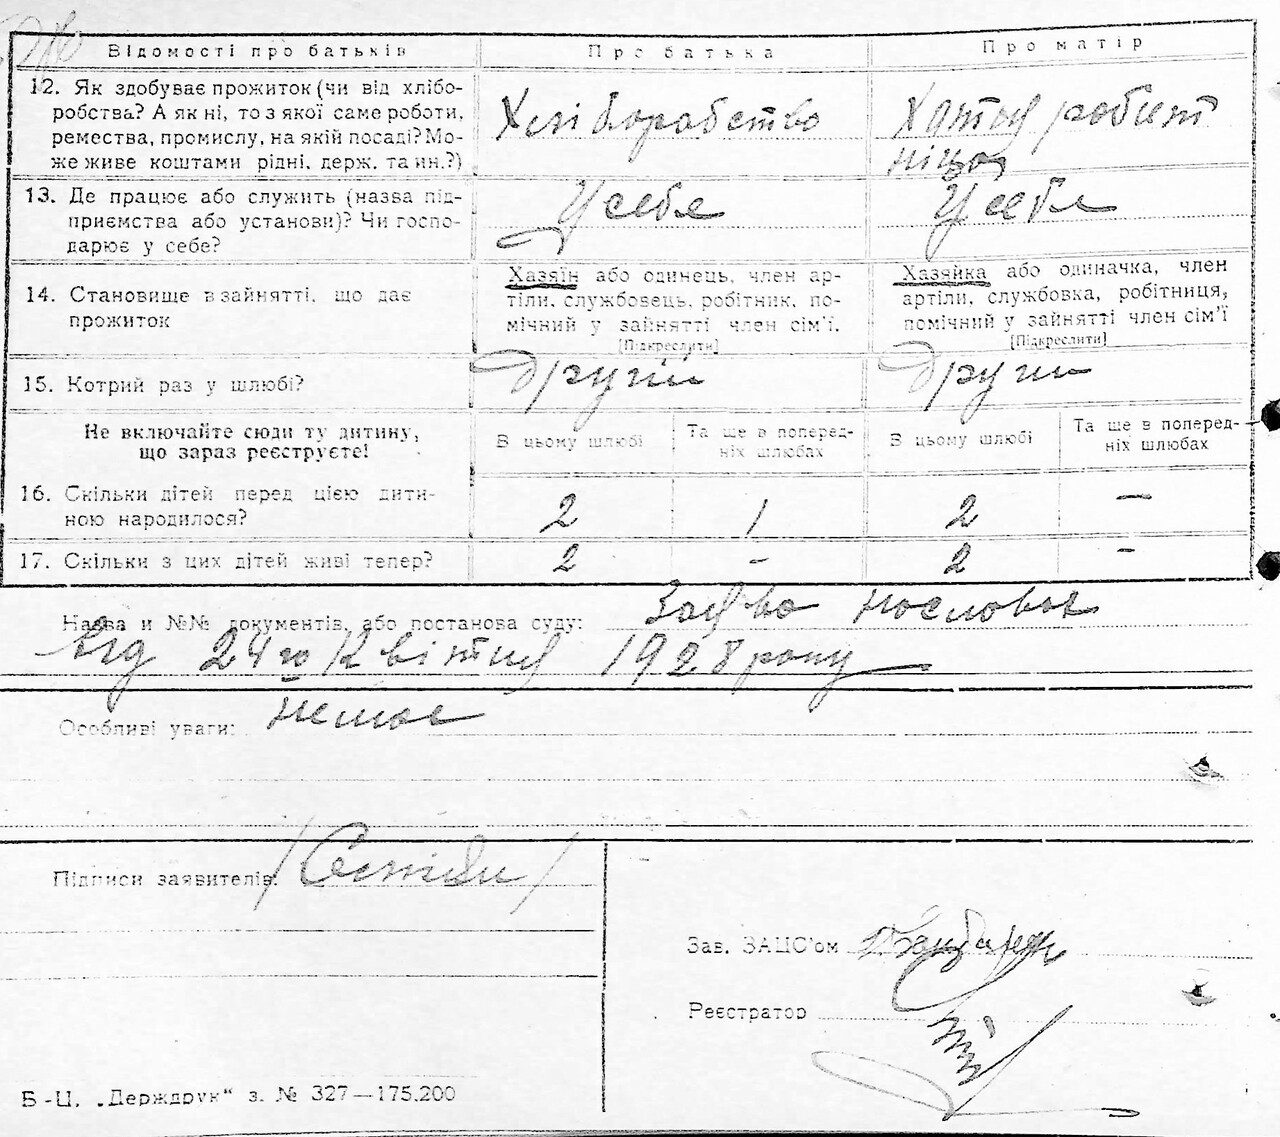 Відомості про батьків Про батька Про матір
12. Як здобуває прожиток (чи від хлібо-
робства? А як ні, то з якої саме роботи,
ремества, промислу, на якій посаді? Мо-
же живе коштами рідні, держ. та ин.?)
Хліборобство
Хатня робіт
ніця
13. Де працює або служить (назва під-
приємства або установи)? Чи госпо-
дарює у себе?
У себе
У себе
14. Становище в зайнятті, що дає
прожиток
Хазяїн або одинець, член ар-
тіли, службовець, робітник, по-
мічний у зайнятті член сім'ї.
[Підкреслити]
Хазяйка або одиначка, член
артіли, службовка, робітниця,
помічний у зайнятті член сім'ї
[Підкреслити]
15. Котрий раз у шлюбі? другий други
Не включайте сюди ту дитину,
що зараз реєструєте!
В цьому шлюбі
Та ще в поперед-
ніх шлюбах
В цьому шлюбі
Та ще в поперед-
ніх шлюбах
16. Скільки дітей перед цією дити-
ною народилося?
2 1 2 —
17. Скільки з цих дітей живі тепер? 2 - 2 -
Назва и №№ документів, або постанова суду: Заява
від 24го Квітня 1928 року
Особливі уваги: немає
Підписи заявителів:
Зав. ЗАЦС'ом
Реєстратор
Б-Ц. „Держдрук“ з. № 327—175.200